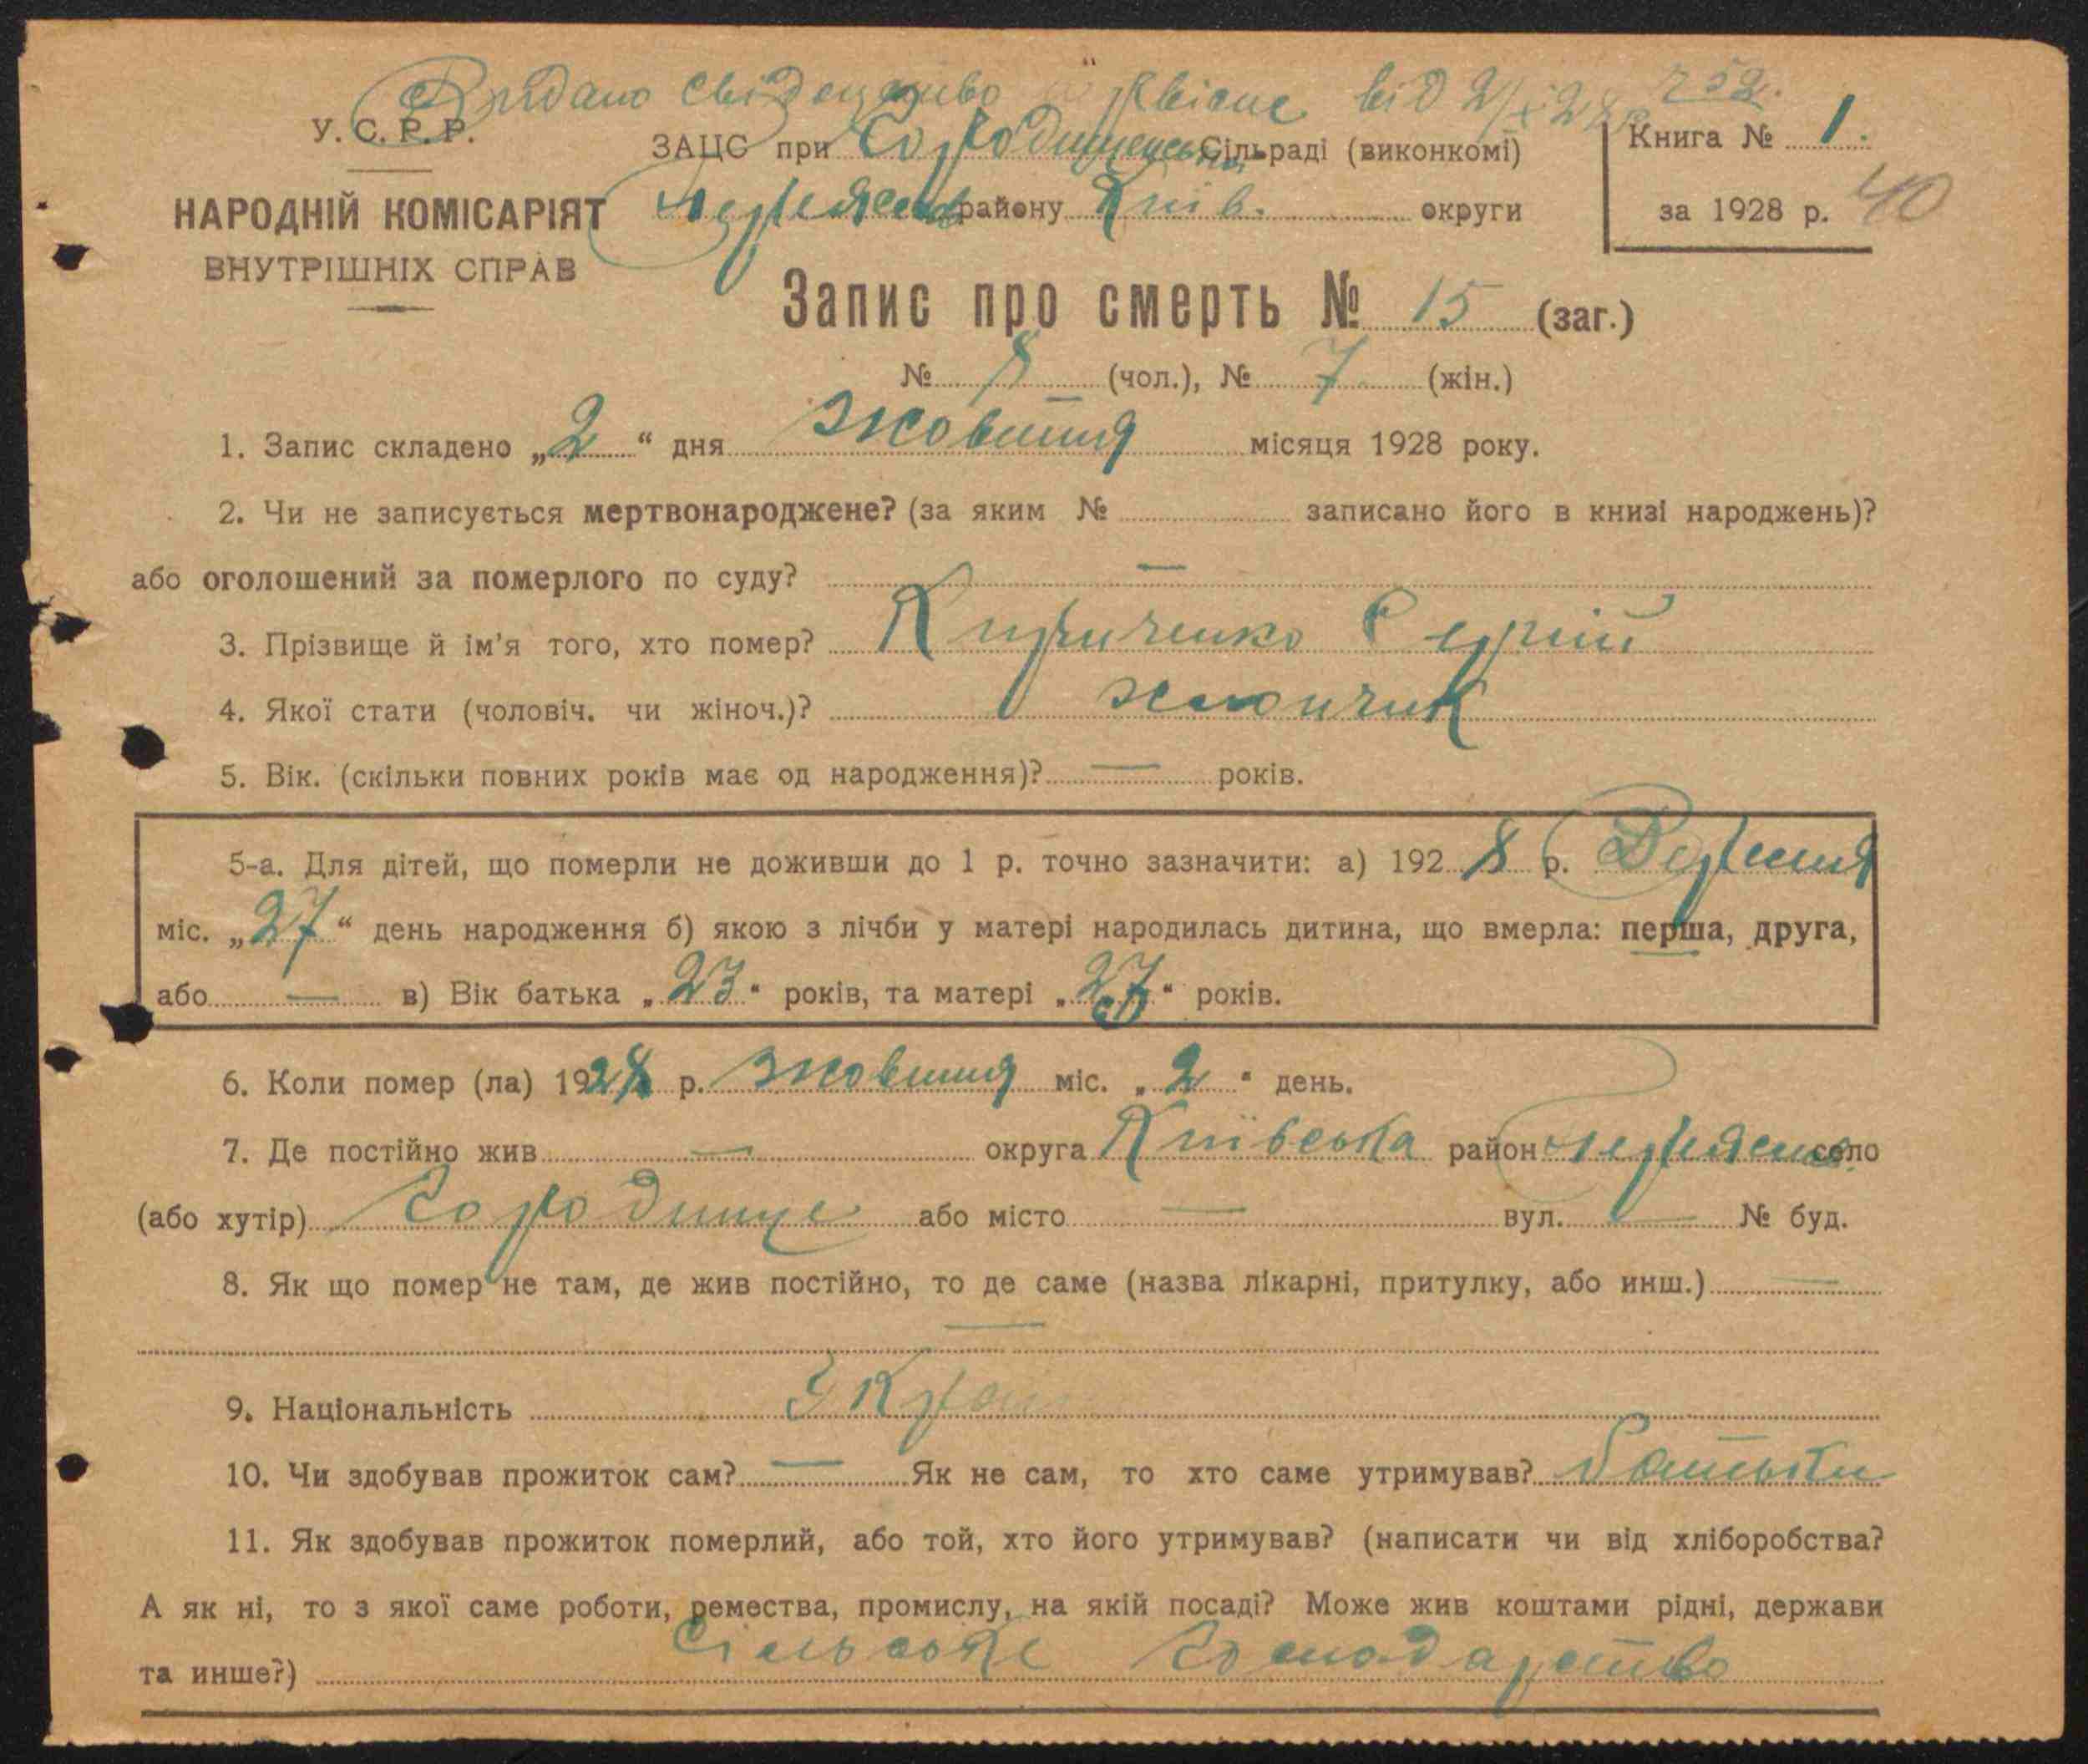 Видано свідецтво від 2/X 28 р
У. С. Р. Р. ЗАЦС при Городищенській Сільраді (виконкомі) Книга № 1.
НАРОДНІЙ КОМІСАРІЯТ Черняхів району Київ. округи за 1928 р. 40
ВНУТРІШНІХ СПРАВ
Запис про смерть № 15 (заг.)
№ 8 (чол.), № 7 (жін.)
1. Запис складено „2“ дня Жовтня місяця 1928 року.
2. Чи не записується мертвонароджене? (за яким № записано його в книзі народжень)?
або оголошений за померлого по суду? —
3. Прізвище й ім'я того, хто помер? Кириченко Сергій
4. Якої стати (чоловіч. чи жіноч.)? хлопчик
5. Вік. (скільки повних років має од народження)? — років.
5-а. Для дітей, що померли не доживши до 1 р. точно зазначити: а) 1928 р. Вересня
міс. „27“ день народження б) якою з лічби у матері народилась дитина, що вмерла: перша, друга,
або — в) Вік батька „23“ років, та матері „27“ років.
6. Коли помер (ла) 1928 р. Жовтня міс. „2“ день.
7. Де постійно жив — округа Київська район Черняхів. село
(або хутір) Городище або місто — вул. — № буд.
8. Як що помер не там, де жив постійно, то де саме (назва лікарні, притулку, або инш.) —
—
9. Національність Украї
10. Чи здобував прожиток сам? — Як не сам, то хто саме утримував? батьки
11. Як здобував прожиток померлий, або той, хто його утримував? (написати чи від хліборобства?
А як ні, то з якої саме роботи, ремества, промислу, на якій посаді? Може жив коштами рідні, держави
та инше?) Сільське господарство